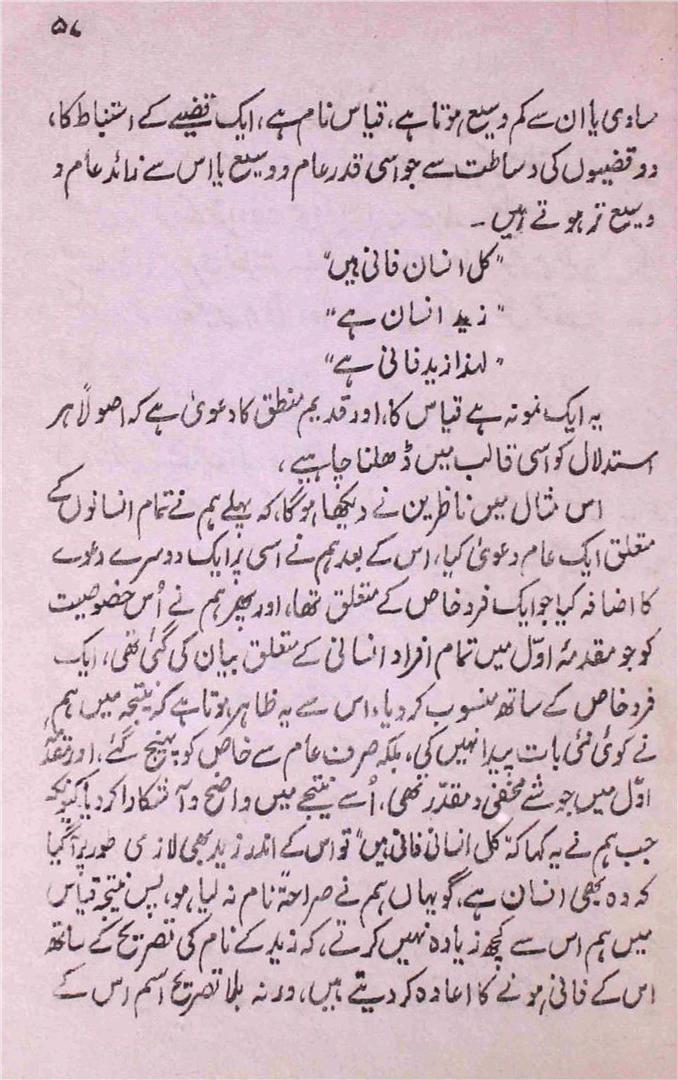 ۵۷
ساوی یا ان سے کم وسیع ہوتا ہے، قیاس نام ہے، ایک قضیے کے استنباط کا،
دو قضیوں کی وساطت سے جو اسی قدر عام و وسیع یا اس سے زائد عام و
وسیع تر ہوتے ہیں۔
"کل انسان فانی ہیں"
"زید انسان ہے"
"لہذا زید فانی ہے"
یہ ایک نمونہ ہے قیاس کا، اور قدیم منطق کا دعویٰ ہے کہ اصولاً ہر
استدلال کو اسی قالب میں ڈھلنا چاہیے،
اس مثال میں ناظرین نے دیکھا ہوگا، کہ پہلے ہم نے تمام انسانوں کے
متعلق ایک عام دعویٰ کیا، اس کے بعد ہم نے اسی پر ایک دوسرے دعوے
کا اضافہ کیا جو ایک فرد خاص کے متعلق تھا، اور پھر ہم نے اُس خصوصیت
کو جو مقدمۂ اوّل میں تمام افراد انسانی کے متعلق بیان کی گئی تھی، ایک
فرد خاص کے ساتھ منسوب کر دیا، اس سے یہ ظاہر ہوتا ہے کہ نتیجہ میں ہم
نے کوئی نئی بات پیدا نہیں کی، بلکہ صرف عام سے خاص کو پہنچ گئے، اور مقدمۂ
اوّل میں جو شے مخفی و مقدّر تھی، اُسے نتیجے میں واضح و آشکارا کر دیا کیونکہ
جب ہم نے یہ کہا کہ "کل انسان فانی ہیں" تو اس کے اندر زید بھی لازمی طور پر آگیا
کہ وہ بھی انسان ہے، گو یہاں ہم نے صراحۃً نام نہ لیا ہو، پس نتیجۂ قیاس
میں ہم اس سے کچھ زیادہ نہیں کرتے، کہ زید کے نام کی تصریح کے ساتھ
اس کے فانی ہونے کا اعادہ کر دیتے ہیں، ورنہ بلا تصریح اسم اس کے